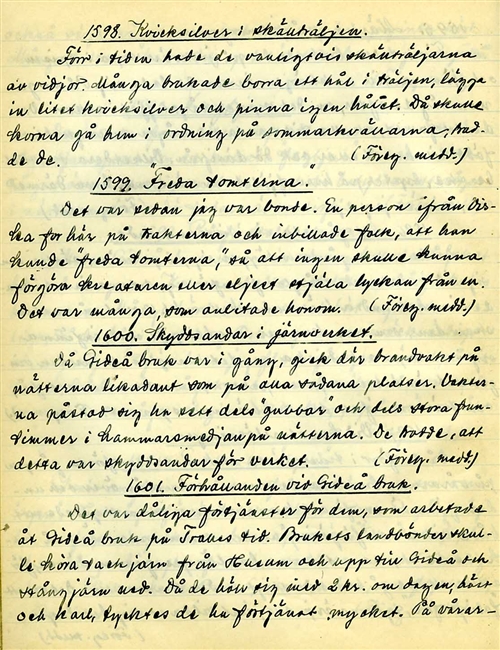 1598. Kvicksilver i skäuträljen.
Förr i tiden hade de vanligtvis skäuträljarna
av vidjor. Många brukade borra ett hål i träljen, lägga
in litet kvicksilver och pinna igen hålet. Då skulle
korna gå hem i ordning på sommarkvällarna, trod-
de de. (Föreg. medd.)
1599. "Freda tomterna."
Det var sedan jag var bonde. En person ifrån Vis-
ka for här på trakterna och inbillade folk, att han
kunde "freda tomterna," så att ingen skulle kunna
förgöra kreaturen eller eljest stjäla lyckan från en.
Det var många, som anlitade honom. (Föreg. medd.)
1600. Skyddsandar i järnverket.
Då Gideå bruk var i gång, gick där brandvakt på
nätterna likadant som på alla sådana platser. Vakter-
na påstod sig ha sett dels "gubbar" och dels stora frun-
timmer i hammarsmedjan på nätterna. De trodde, att
detta var skyddsandar för verket. (Föreg. medd.)
1601. Förhållanden vid Gideå bruk.
Det var dåliga förtjänster för dem, som arbetade
åt Gideå bruk på tid. Brukets landbönder skul-
le köra tackjärn från Husum och upp till Gideå och
stångjärn ned. Då de höll sig med 2 kr. om dagen, häst
och karl, tycktes de ha förtjänat mycket. På vårar-